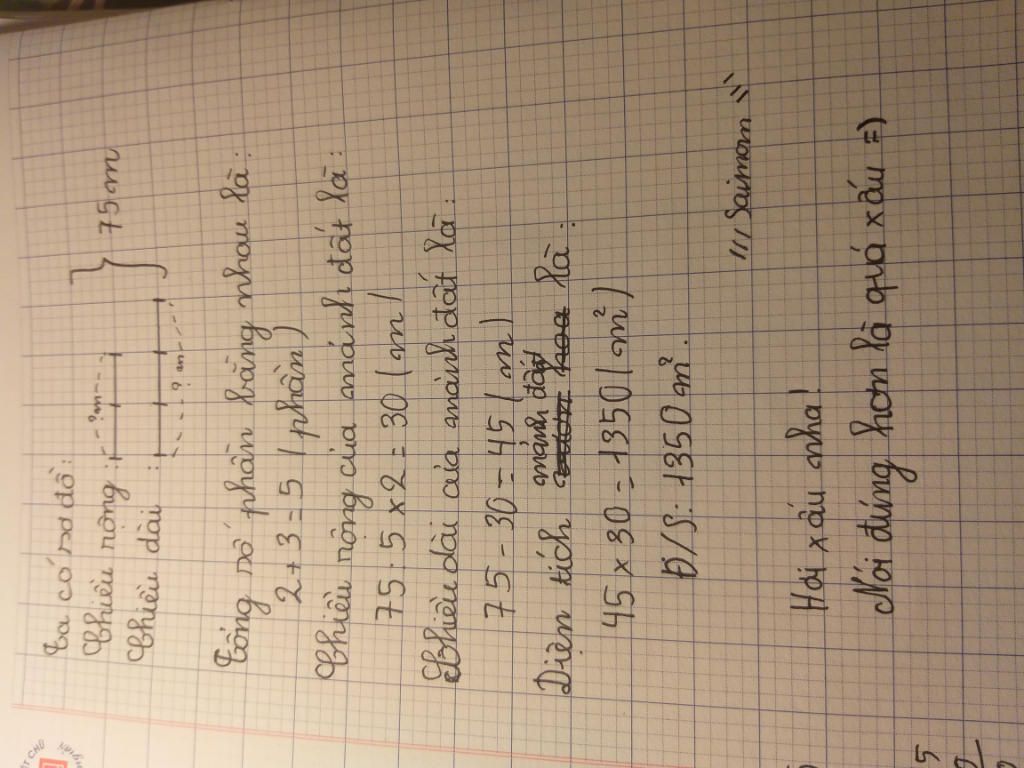 Ta có sơ đồ:
Chiều rộng : ?m
75m
Chiều dài : ? m
Tổng số phần bằng nhau là:
2 + 3 = 5 (phần)
Chiều rộng của mảnh đất là:
75 : 5 x 2 = 30 (m)
Chiều dài của mảnh đất là:
75 - 30 = 45 (m)
Diện tích mảnh đất là:
45 x 30 = 1350 (m²)
Đ/S: 1350 m².
"Saimon"
Hơi xấu nha!
Nói đúng hơn là quá xấu =)